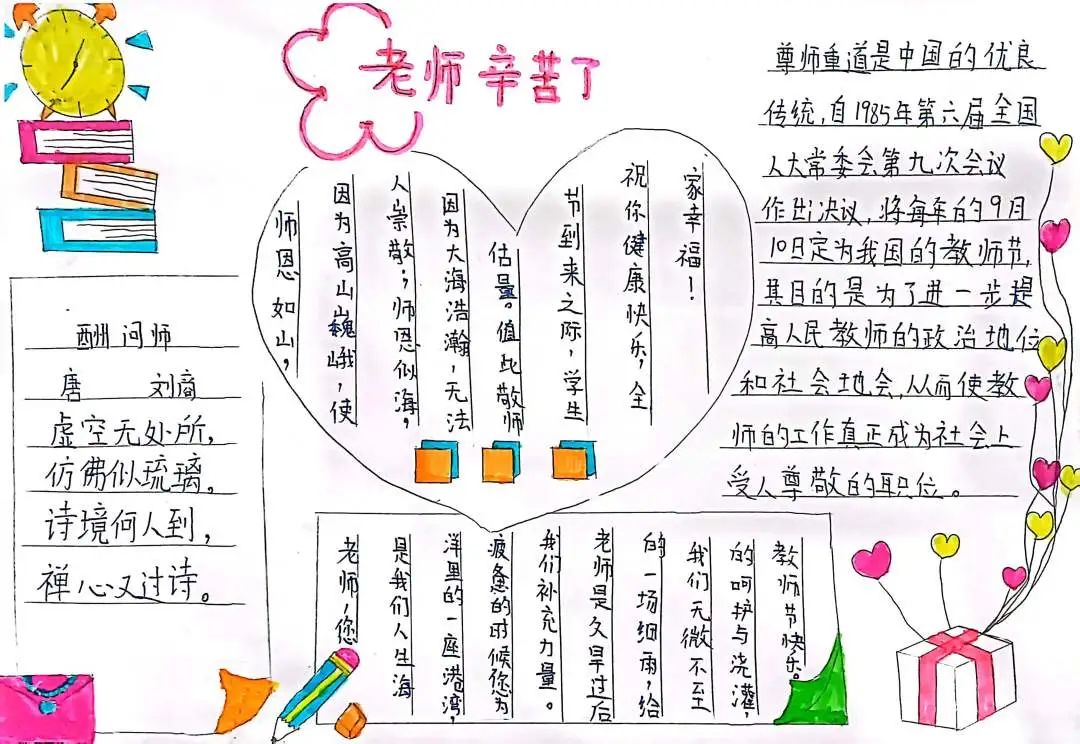 老师辛苦了
酬问师
唐 刘商
虚空无处所,
仿佛似琉璃。
诗境何人到,
禅心又过诗。
师恩如山,
因为高山巍峨,使
人崇敬;师恩似海,
因为大海浩瀚,无法
估量。值此敬师
节到来之际,学生
祝你健康快乐,全
家幸福!
尊师重道是中国的优良
传统,自1985年第六届全国
人大常委会第九次会议
作出决议,将每年的9月
10日定为我国的教师节,
其目的是为了进一步提
高人民教师的政治地位
和社会地会,从而使教
师的工作真正成为社会上
受人尊敬的职位。
老师,您
是我们人生海
洋里的一座港湾,
疲惫的时候您为
我们补充力量。
老师是久旱过后
的一场细雨,给
我们无微不至
的呵护与浇灌,
教师节快乐。